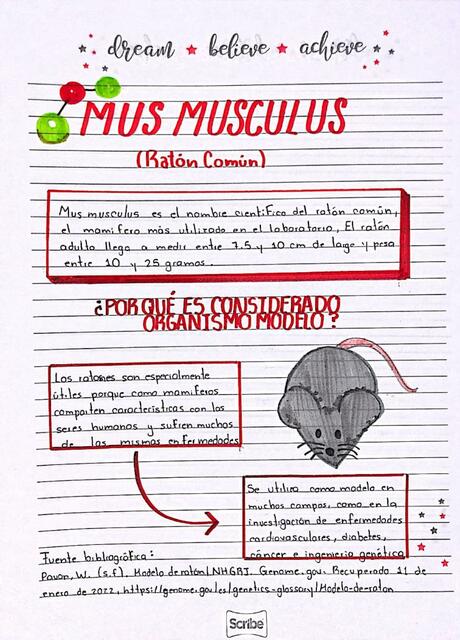 dream ★ believe ★ achieve
MUS MUSCULUS
(Ratón Común)
Mus musculus es el nombre científico del ratón común,
el mamífero más utilizado en el laboratorio. El ratón
adulto llega a medir entre 7.5 y 10 cm de largo y pesa
entre 10 y 25 gramos.
¿POR QUÉ ES CONSIDERADO
ORGANISMO MODELO?
Los ratones son especialmente
útiles porque como mamíferos
comparten características con los
seres humanos y sufren muchos
de las mismas enfermedades
Se utiliza como modelo en
muchos campos, como en la
investigación de enfermedades
cardiovasculares, diabetes,
cáncer e ingeniería genética
Fuente bibliográfica:
Pavan, W. (s.f). Modelo de ratón | NHGRI. Genome.gov. Recuperado 11 de
enero de 2022, https://genome.gov/es/genetics-glossary/Modelo-de-raton
Scribe